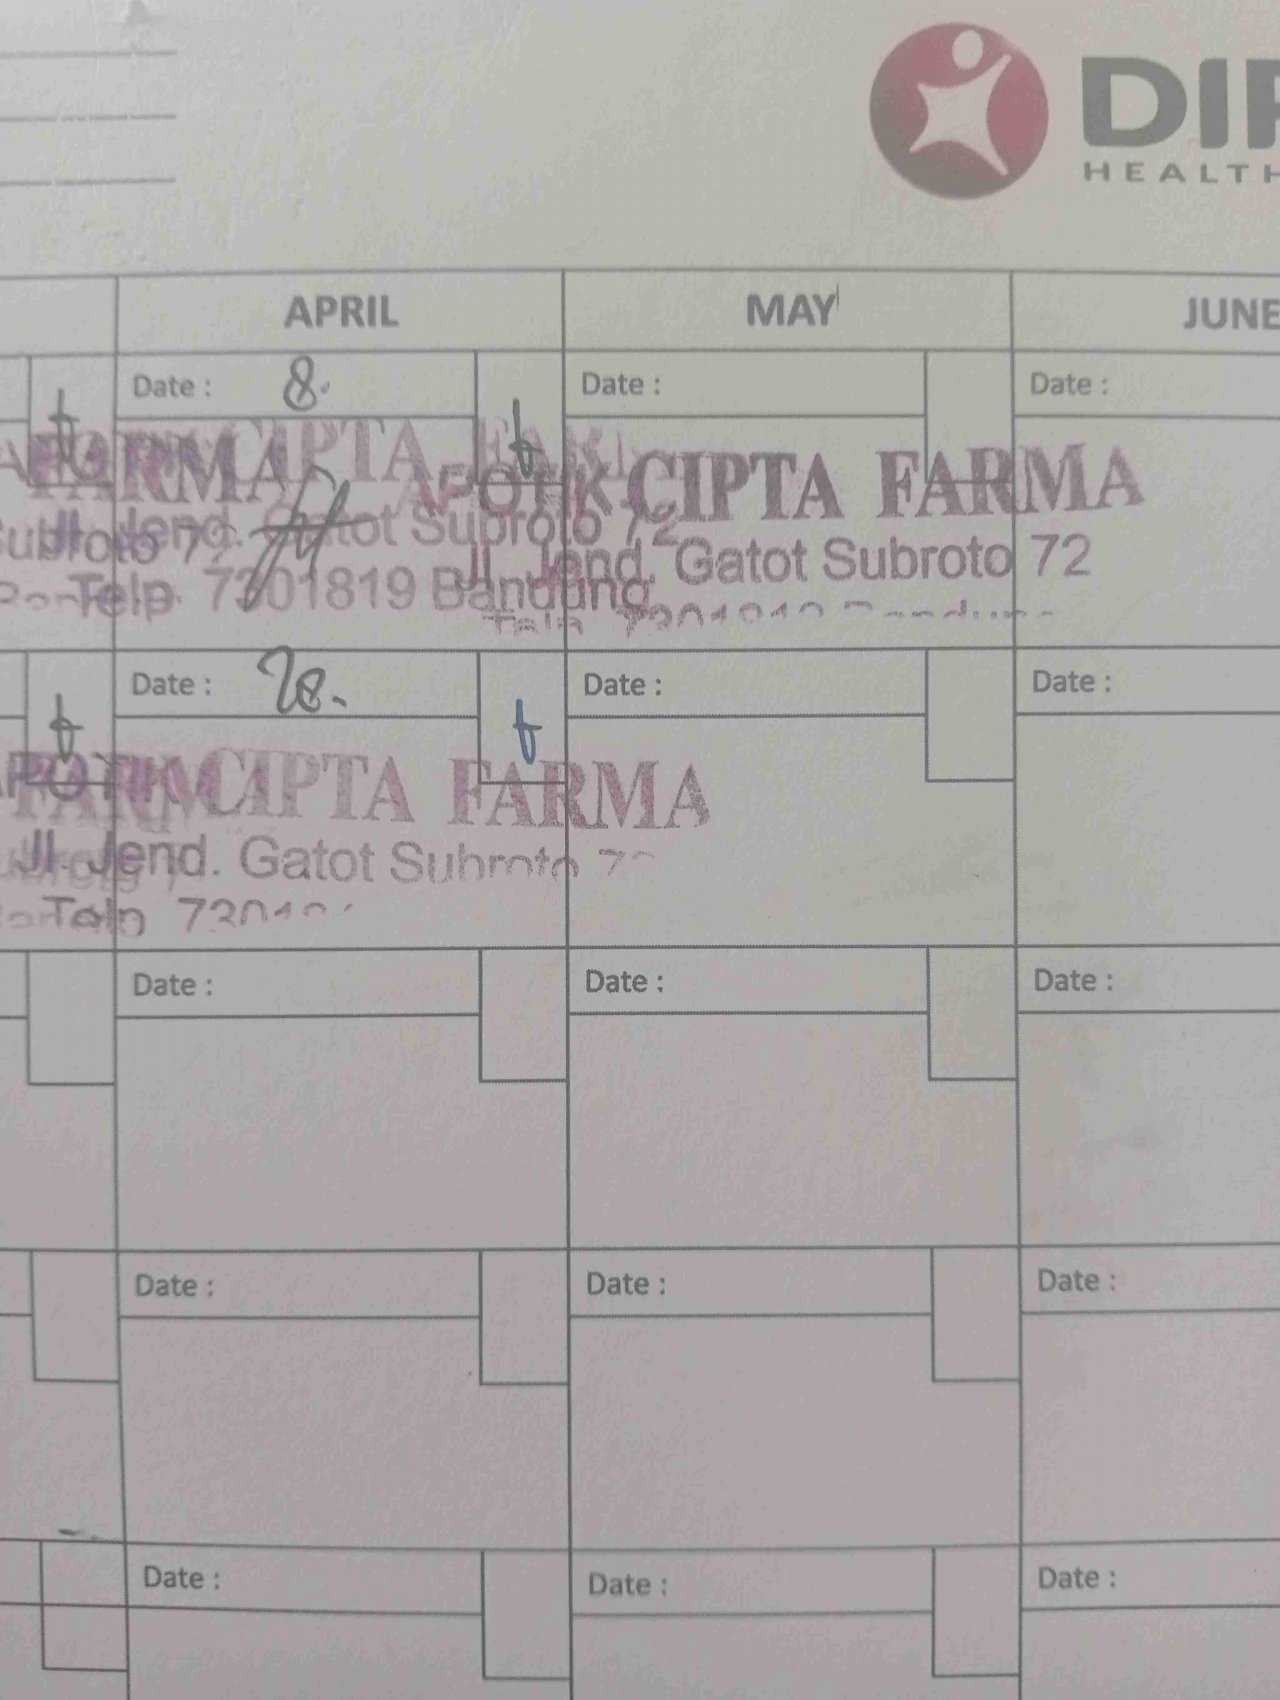 DIP
HEALTH
APRIL MAY JUNE
Date : 8. Date : Date :
FARMA CIPTA FARM APOTIK CIPTA FARMA
Subroto 72 Jl. Jend. Gatot Subroto 72 Jl. Jend. Gatot Subroto 72
Telp. 7301819 Bandung
Telp. 7301819 Bandung
Date : 28. Date : Date :
APOTIK CIPTA FARMA
Jl. Jend. Gatot Subroto 72
Telp 73018
Date : Date : Date :
Date : Date : Date :
Date : Date : Date :